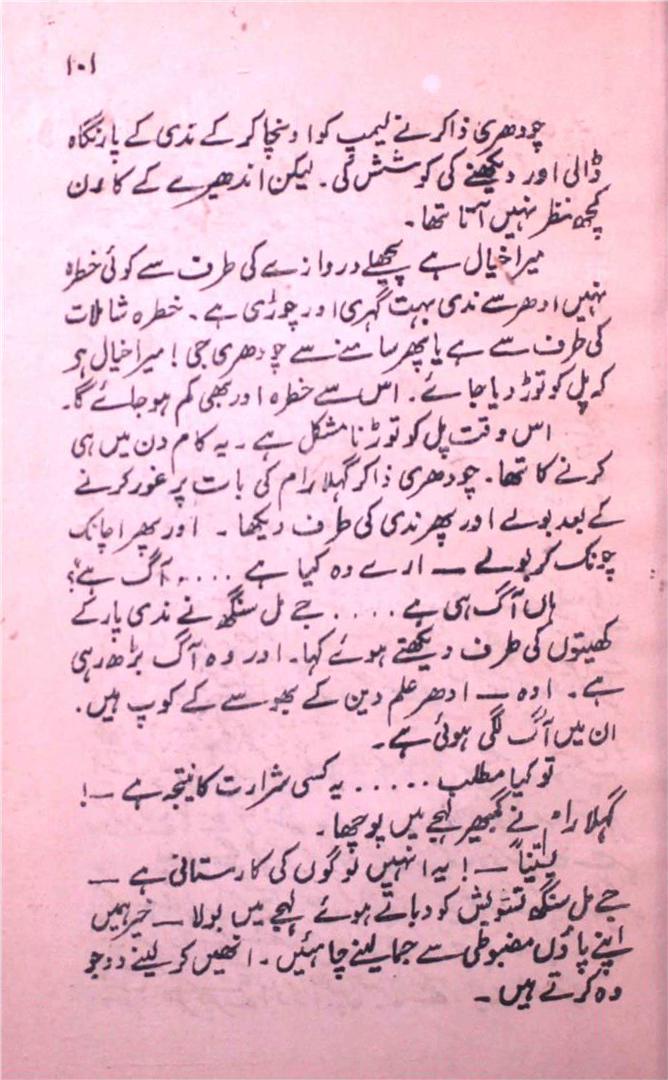 ۱۰۱
چودھری ذاکر نے لیمپ کو اونچا کر کے ندی کے پار نگاہ
ڈالی اور دیکھنے کی کوشش کی۔ لیکن اندھیرے کے کارن
کچھ نظر نہیں آتا تھا۔
میرا خیال ہے پچھلے دروازے کی طرف سے کوئی خطرہ
نہیں ادھر سے ندی بہت گہری اور چوڑی ہے۔ خطرہ شالات
کی طرف سے ہے یا پھر سامنے سے چودھری جی! میرا خیال ہے
کہ پل کو توڑ دیا جائے۔ اس سے خطرہ اور بھی کم ہو جائے گا۔
اس وقت پل کو توڑنا مشکل ہے۔ یہ کام دن میں ہی
کرنے کا تھا۔ چودھری ذاکر گہلا رام کی بات پر غور کرنے
کے بعد بولے اور پھر ندی کی طرف دیکھا۔ اور پھر اچانک
چونک کر بولے — ارے وہ کیا ہے .... آگ ہے؟
ہاں آگ ہی ہے .... جے مل سنگھ نے ندی پار کے
کھیتوں کی طرف دیکھتے ہوئے کہا۔ اور وہ آگ بڑھ رہی
ہے۔ اوہ — ادھر علم دین کے بھوسے کے کوپ ہیں۔
ان میں آگ لگی ہوئی ہے۔
تو کیا مطلب ..... یہ کسی شرارت کا نتیجہ ہے —!
گہلا رام نے گمبھیر لہجے میں پوچھا۔
یقیناً —! یہ انہیں لوگوں کی کارستانی ہے —
جے مل سنگھ تشویش کو دباتے ہوئے لہجے میں بولا — خیر ہمیں
اپنے پاؤں مضبوطی سے جما لینے چاہئیں۔ انھیں کر لینے دو جو
وہ کرتے ہیں۔